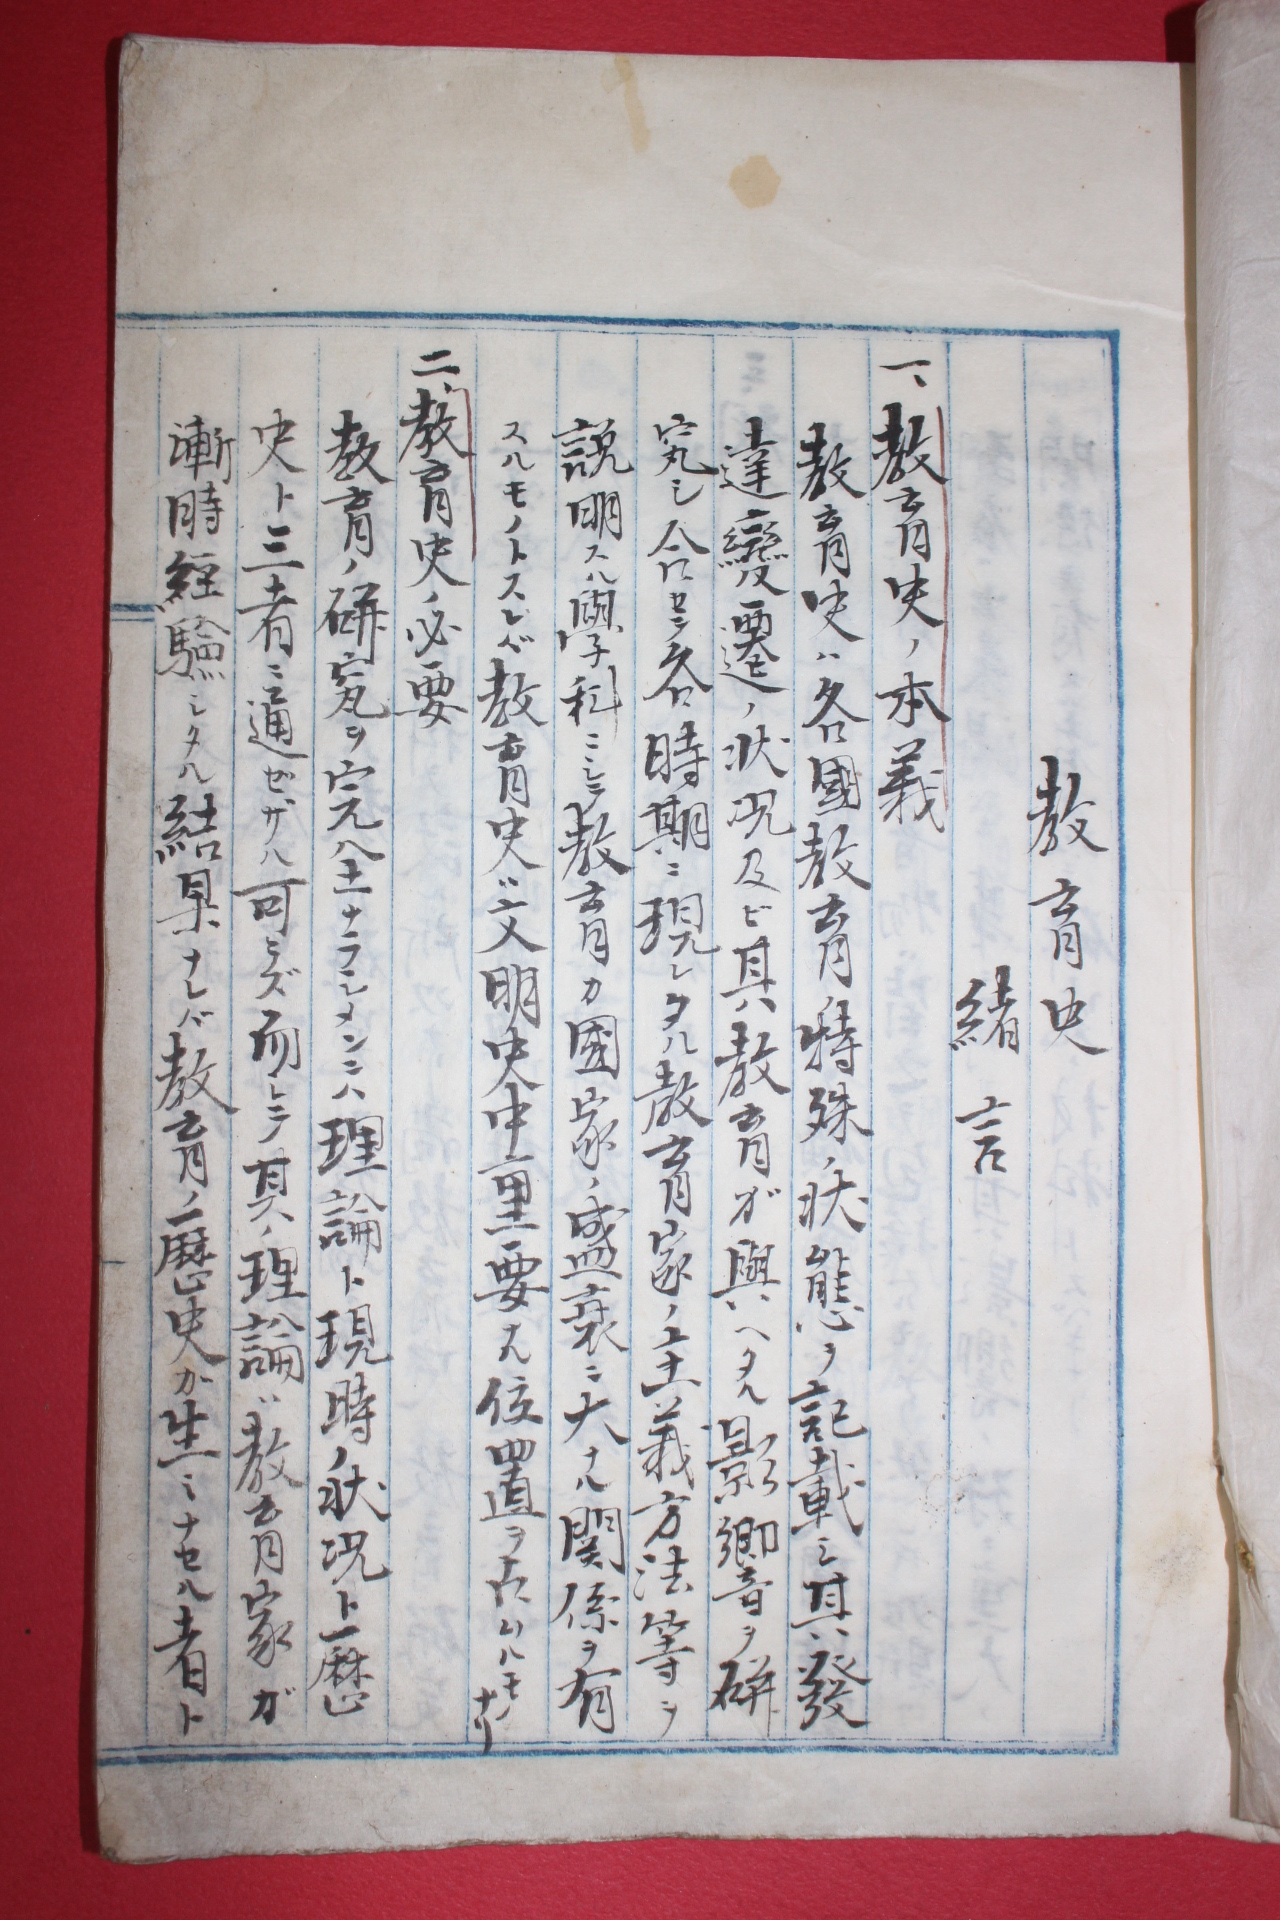 教育史
緒言
一、教育史ノ本義
教育史ハ各國教育特殊ノ状態ヲ記載シ其ノ發
達變遷ノ状況及ビ其教育ガ與ヘタル影響ヲ研
究シ合セテ各時期ニ現レタル教育家ノ主義方法等ヲ
説明スル學科ニシテ教育カ國家ノ盛衰ニ大ナル関係ヲ有
スルモノトスレバ教育史ハ文明史中重要ナル位置ヲ占ムルモノナリ
二、教育史ノ必要
教育ノ研究ヲ完全ナラシメンニハ理論ト現時ノ状况ト歴
史ト三者ニ通ゼザル可ラズ而シテ其ノ理論ハ教育家ガ
漸時経験シタル結果ナレバ教育ノ歴史ガ生ミナセル者ト